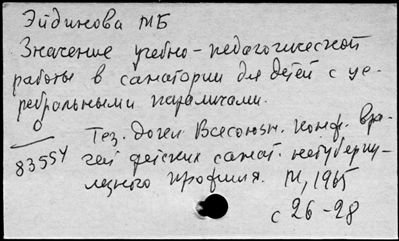 Эйдинова МБ
Значение учебно-педагогической
работы в санатории для детей с це-
ребральными параличами.
Тез. докл Всесоюзн. конф. вра-
83554 чей детских санат. нетуберку-
лезного профиля. М, 1965
с 26-28